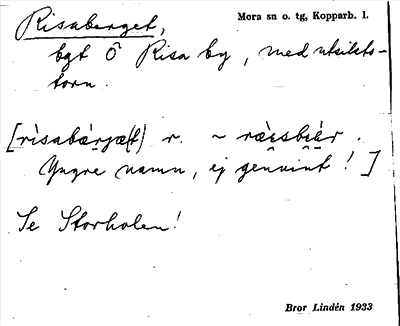 Risaberget,
Mora sn o. tg, Kopparb. l.
bgt Ö Risa by, med utsikts-
torn.
[rìsabærjæ(t) r. ~ ræ̀isbiær.
Yngre namn, ej genuint!]
Se Storholen!
Bror Lindén 1933